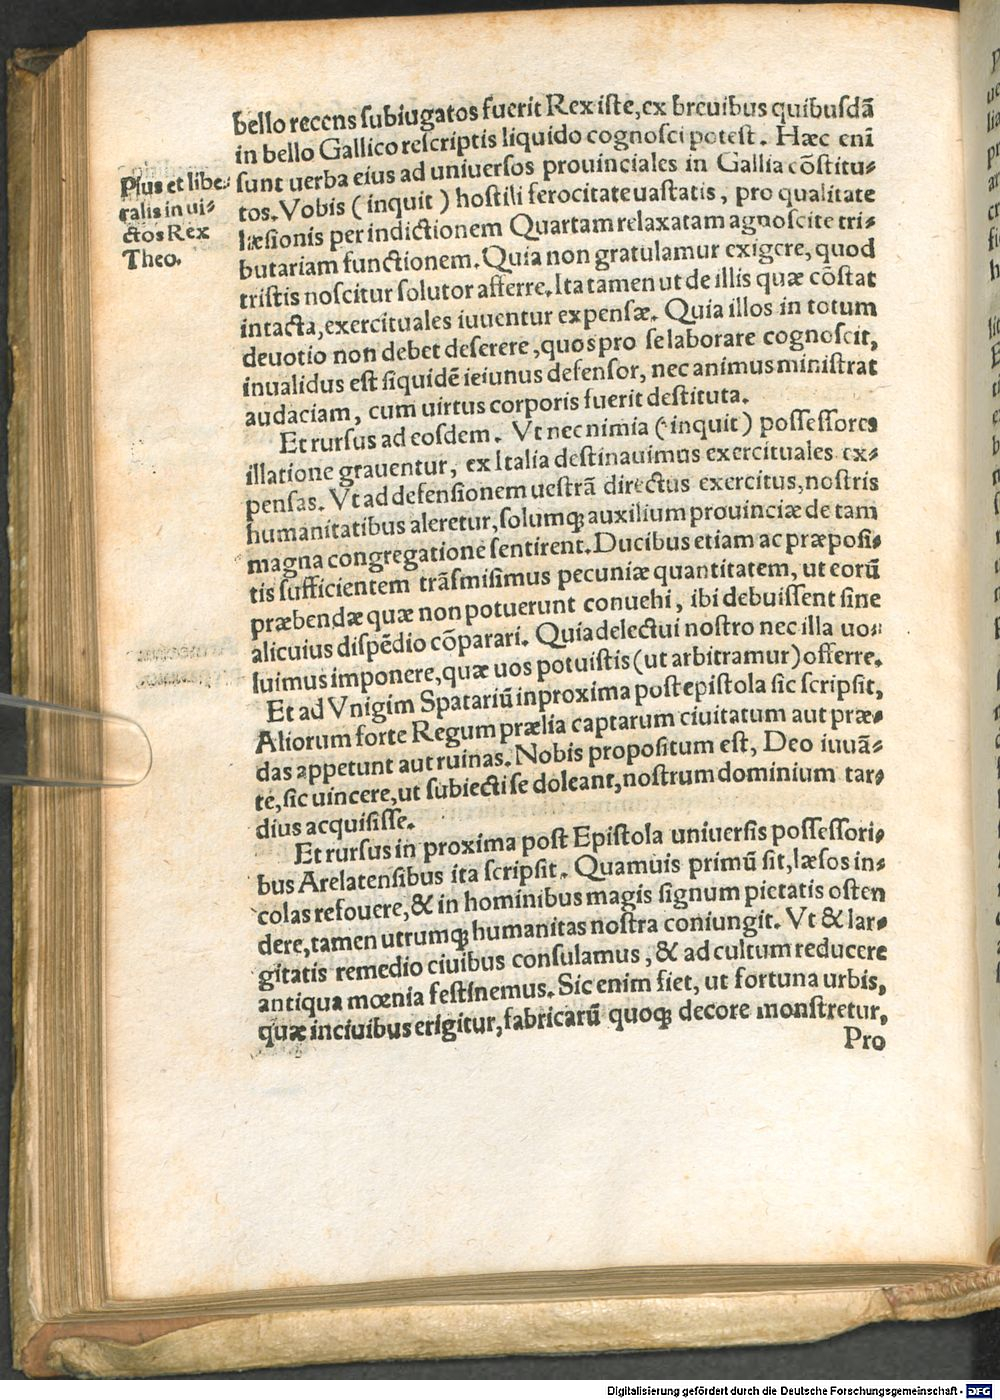 bello recens ſubiugatos fuerit Rex iſte, ex breuibus quibuſdã
in bello Gallico reſcriptis liquido cognoſci poteſt. Hæc eni᷃
ſunt uerba eius ad uniuerſos prouinciales in Gallia cõſtitu⸗
tos. Vobis (inquit) hoſtili ferocitate uaſtatis, pro qualitate
læſionis per indictionem Quartam relaxatam agnoſcite tri⸗
butariam functionem. Quia non gratulamur exigere, quod
triſtis noſcitur ſolutor afferre. Ita tamen ut de illis quæ cõſtat
intacta, exercituales iuuentur expenſæ. Quia illos in totum
deuotio non debet deſerere, quos pro ſe laborare cognoſcit,
inualidus eſt ſiquidẽ ieiunus defenſor, nec animus miniſtrat
audaciam, cum uirtus corporis fuerit deſtituta.
Pius et libe⸗
ralis in ui⸗
ctos Rex
Theo.
Et rurſus ad eoſdem. Vt nec nimia (inquit) poſſeſſores
illatione grauentur, ex Italia deſtinauimus exercituales ex⸗
penſas. Vt ad defenſionem ueſtrã directus exercitus, noſtris
humanitatibus aleretur, ſolumqꝫ auxilium prouinciæ de tam
magna congregatione ſentirent. Ducibus etiam ac præpoſi⸗
tis ſufficientem trãſmiſimus pecuniæ quantitatem, ut eorũ
præbendæ quæ non potuerunt conuehi, ibi debuiſſent ſine
alicuius diſpẽdio cõparari. Quia delectui noſtro nec illa uo⸗
luimus imponere, quæ uos potuiſtis (ut arbitramur) offerre.
Et ad Vnigim Spatariũ in proxima poſt epiſtola ſic ſcripſit,
Aliorum forte Regum prælia captarum ciuitatum aut præ⸗
das appetunt aut ruinas. Nobis propoſitum eſt, Deo iuuã⸗
te, ſic uincere, ut ſubiecti ſe doleant, noſtrum dominium tar⸗
dius acquiſiſſe.
Et rurſus in proxima poſt Epiſtola uniuerſis poſſeſſori⸗
bus Arelatenſibus ita ſcripſit. Quamuis primũ ſit, læſos in⸗
colas refouere, & in hominibus magis ſignum pietatis oſten
dere, tamen utrumqꝫ humanitas noſtra coniungit. Vt & lar⸗
gitatis remedio ciuibus conſulamus, & ad cultum reducere
antiqua mœnia feſtinemus. Sic enim fiet, ut fortuna urbis,
quæ in ciuibus erigitur, fabricarũ quoqꝫ decore monſtretur,
Pro
Digitalisierung gefördert durch die Deutsche Forschungsgemeinschaft - DFG